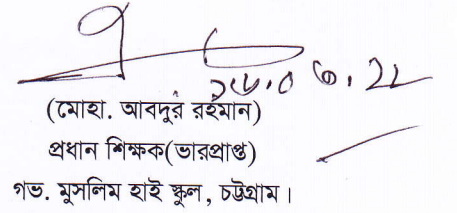 (মোহাঃ আবদুর রহমান)
প্রধান শিক্ষক(ভারপ্রাপ্ত)
গভ. মুসলিম হাই স্কুল, চট্টগ্রাম।